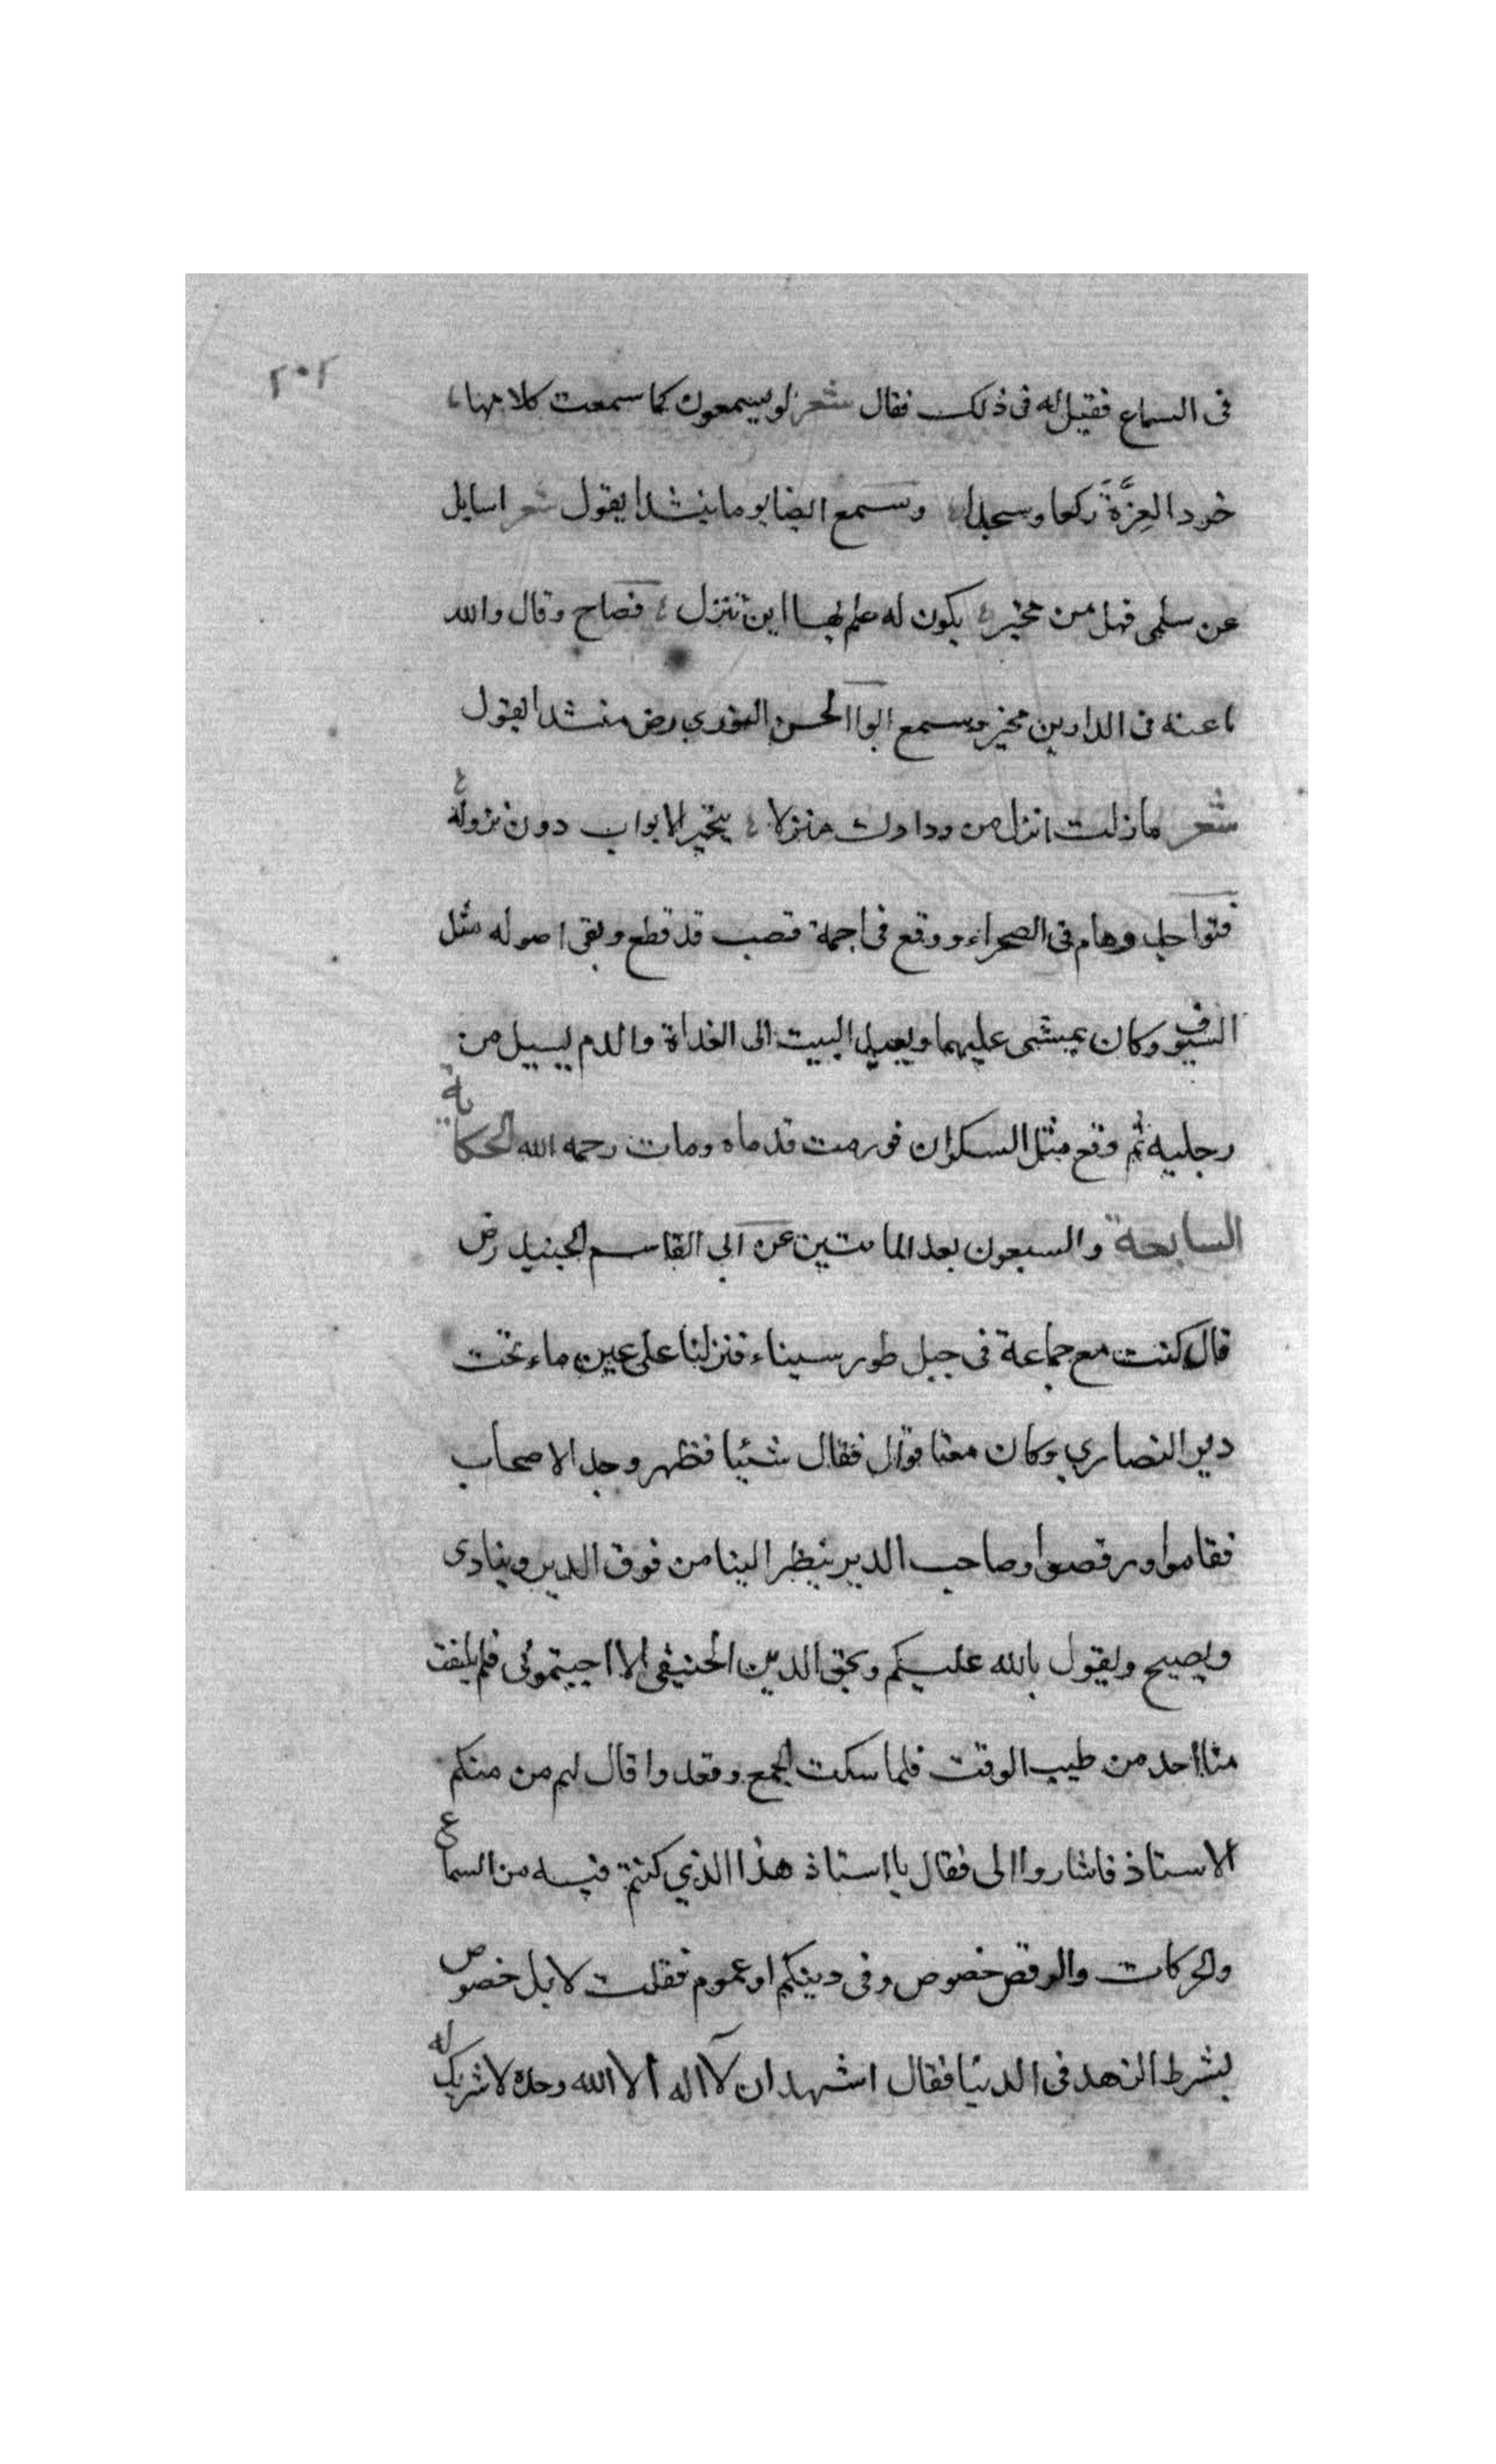 ٢٠٢
فى السماع فقيل له فى ذلك فقال شعر لو يسمعون كما سمعت كلامها ؛
خرو العِزَّةَ ركعا وسجدا ؛ وسمع ايضا يوما منشدا يقول شعر اسايل
عن سلمى فهل من مخبر ؛ يكون له علم بها اين تنزل ؛ فصاح وقال والله
ما عنه فى الدارين مخبر وسمع ابوا الحسن النوري رض منشدا يقول
شعر ما زلت انزل من ودادك منزلا ؛ يتحير الابواب دون نزوله ؛
فتواجد وهام فى الصحراء ووقع فى اجمة قصب قد قطع وبقى اصوله مثل
السيوف وكان يمشى عليهما ويعيد البيت الى الغداة والدم يسيل من
رجليه ثم وقع مثل السكران فورمت قدماه ومات رحمه الله الحكاية
السابعة والسبعون بعد المائتين عن ابي القاسم الجنيد رض
قال كنت مع جماعة فى جبل طور سيناء فنزلنا على عين ماء تحت
دير النصاري وكان معنا قوّال فقال شيئا فظهر وجد الاصحاب
فقاموا ورقصوا وصاحب الدير ينظر الينا من فوق الدير وينادى
ويصيح ويقول بالله عليكم وبحق الدين الحنيفى الا اجبتموني فلم يلتفت
منا احد من طيب الوقت فلما سكت الجمع وقعدوا قال لهم من منكم
الاستاذ فاشاروا الى فقال يا استاذ هذا الذي كنتم فيه من السماع
والحركات والرقص خصوص وفى دينكم او عموم فقلت لا بل خصوص
بشرط الزهد فى الدنيا فقال اشهد ان لا اله الا الله وحده لا شريك له